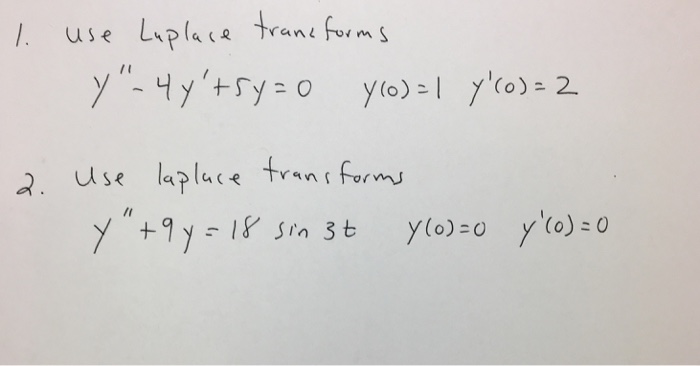 1. use Laplace transforms
y"-4y'+5y=0 y(0)=1 y'(0)=2
2. Use laplace transforms
y"+9y=18 sin 3t y(0)=0 y'(0)=0